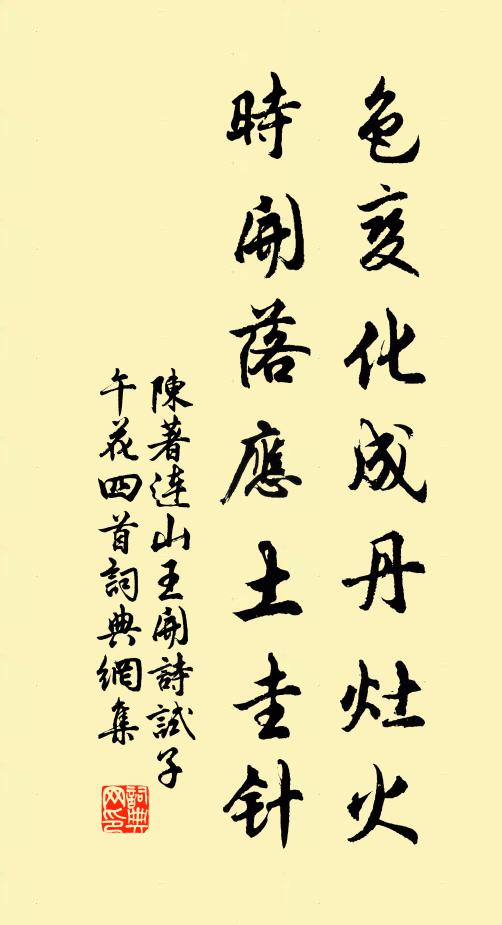 色变化成丹灶火
時開落應土圭针
陳著連山王開詩試子
午花四首詞典網集
詞典
网印